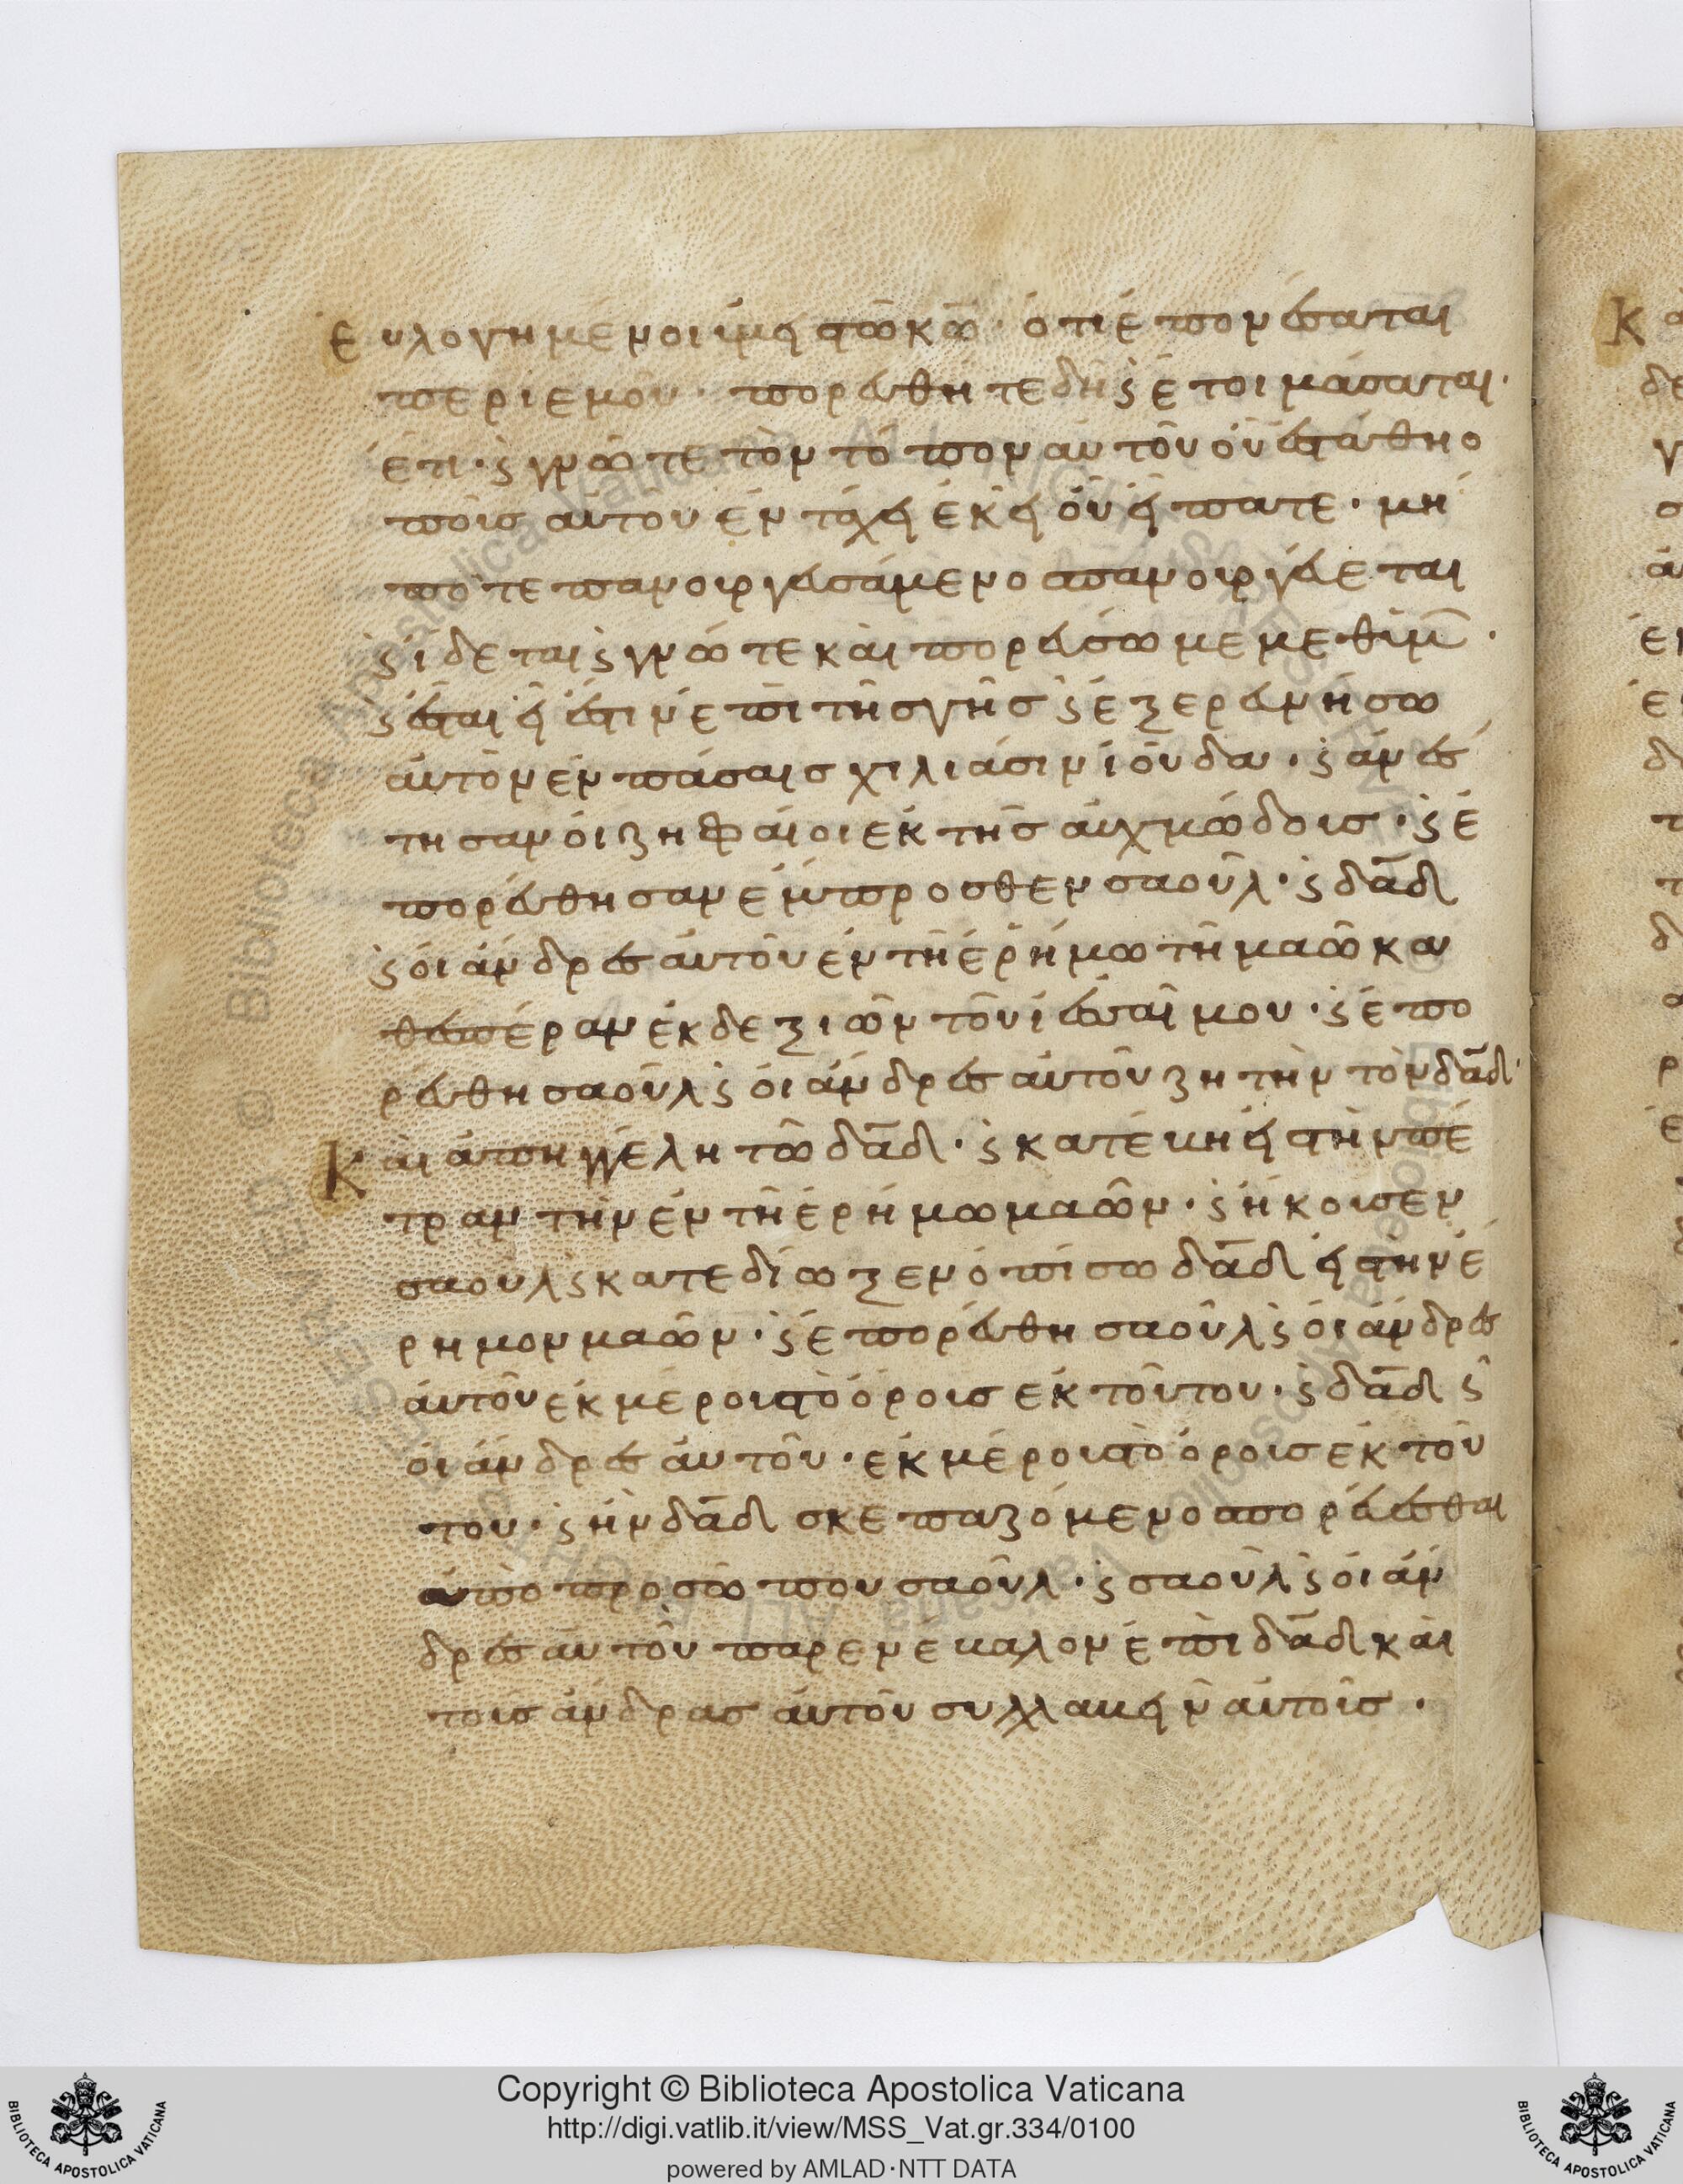 Ευλογημένοι ὑμεῖς τῶ κῶ· ὅτι ἐπονέσαται
περὶ ἐμοῦ· πορεύθητε δὴ ϛ ἑτοιμάσαται·
ἔτι· ϛ γνῶτε τὸν τόπον αὐτοῦ οὗ ἐστάθη ὁ
ποὺς αὐτοῦ ἐν τάχει ἐκεῖ οὗ εἴπατε· μή
ποτε πανουργευσάμενος πανουργεύεται
ϛ ἴδεται ϛ γνώτε καὶ πορευσώμε μεθ ὑμ̅·
ϛ ἔσται εἰ ἔστιν ἐπὶ τῆς γῆς ϛ ἐξερευνήσω
αὐτὸν ἐν πάσαις χιλιάσιν ἰούδα· ϛ ἀνέσ
τησαν οἱ ζηφαίοι ἐκ τῆς αὐχμώδους· ϛ ἐ
πορεύθησαν ἔμπροσθεν σαοῦλ· ϛ δα̅δ
ϛ οἱ ἄνδρες αὐτοῦ ἐν τῆ ἐρήμω τῆ μαῶ κα
θεσπέραν ἐκ δεξιῶν τοῦ ἰεσσαῖμου· ϛ ἐπο
ρεύθη σαοῦλ ϛ οἱ ἄνδρες αὐτοῦ ζητὴν τὸν δα̅δ·
Καὶ ἀπηγγέλη τῶ δα̅δ· ϛ κατέβη εἰς τὴν πέ
τραν τὴν ἐν τῆ ἐρήμω μαῶν· ϛ ἤκουσεν
σαοὺλ ϛ κατεδίωξεν ὀπίσω δα̅δ εἰς τὴν ἔ
ρημον μαῶν· ϛ ἐπορεύθη σαοῦλ ϛ οἱ ἄνδρες
αὐτοῦ ἐκ μέρους τὸ ὄρους ἐκ τοῦτου· ϛ δα̅δ ϛ
οἱ ἄνδρες αὐτοῦ· ἐκ μέρους τὸ ὄρους ἐκ τού
του· ϛ ἦν δα̅δ σκεπαζόμενος πορεύεσθαι
ἀπὸ προσώπου σαοῦλ· ϛ σαοὺλ ϛ οἱ ἄν
δρες αὐτοῦ παρενέβαλον ἐπὶ δα̅δ καὶ
τοὺς ἄνδρας αὐτοῦ συλλαβεῖν αὐτοὺς·
Copyright © Biblioteca Apostolica Vaticana
http://digi.vatlib.it/view/MSS_Vat.gr.334/0100
powered by AMLAD·NTT DATA
BIBLIOTECA APOSTOLICA VATICANA
BIBLIOTECA APOSTOLICA VATICANA